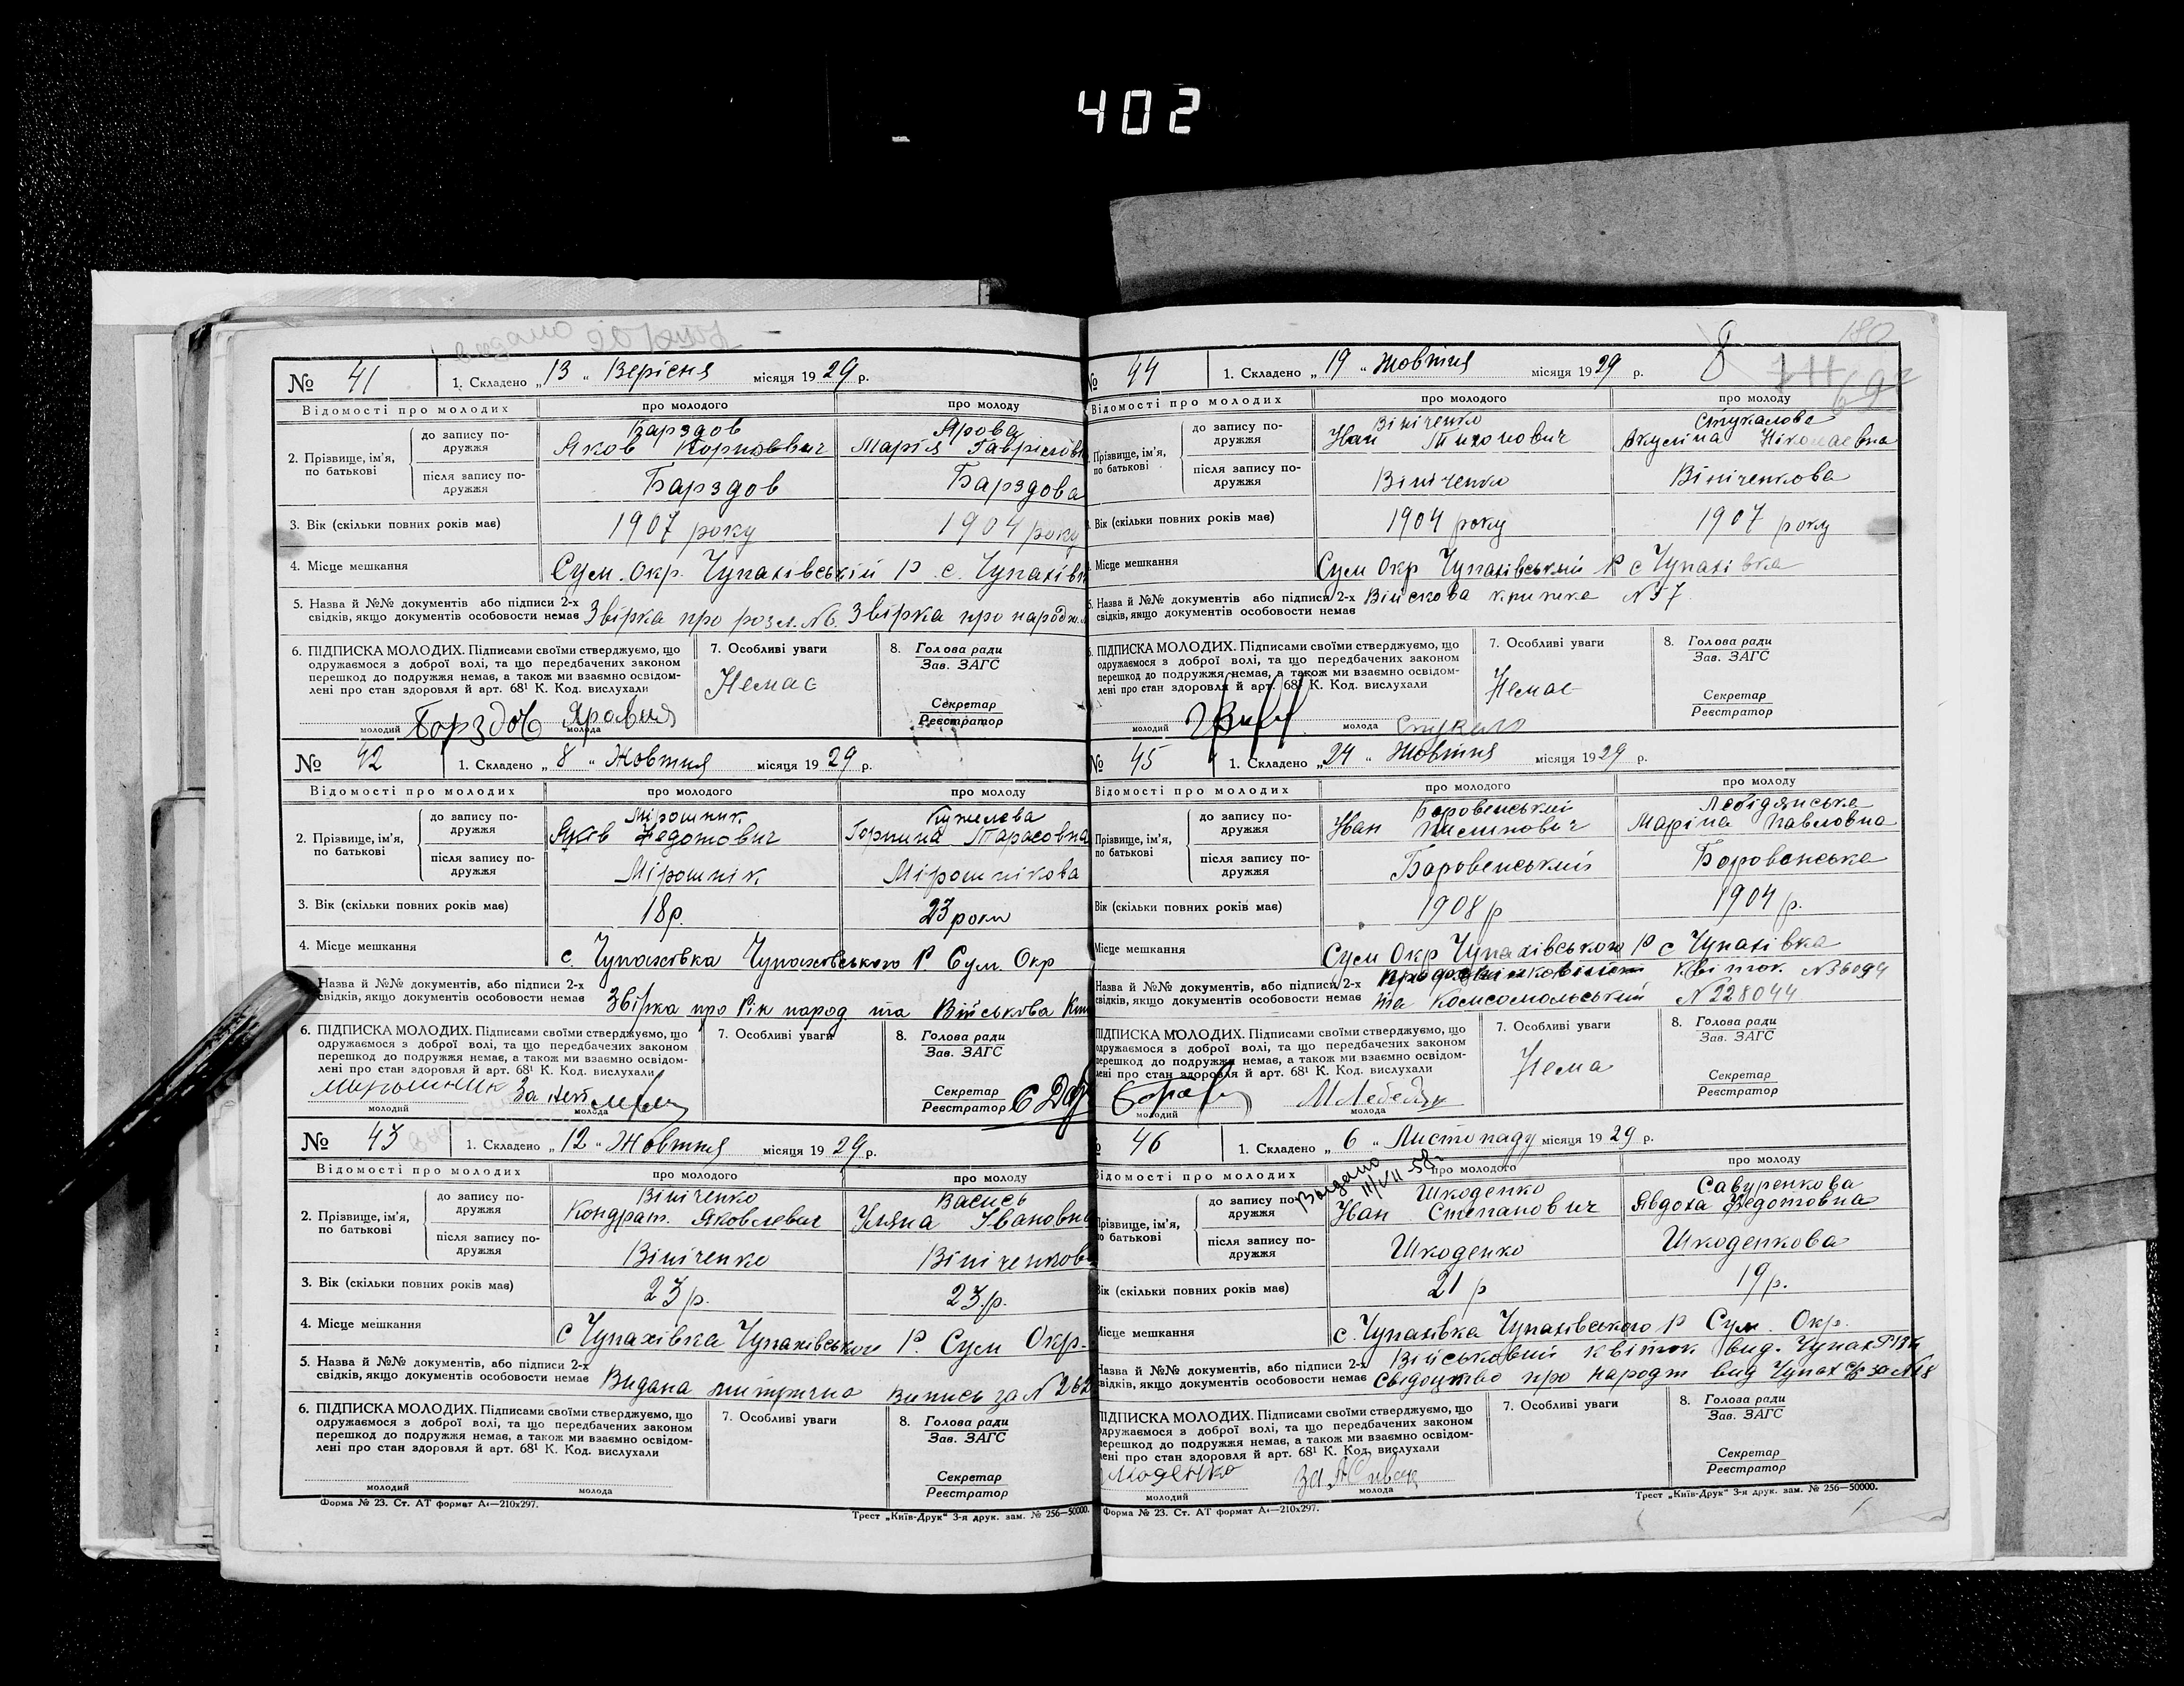 402
видано
180
8
№ 41
1. Складено „13“ Верісня місяця 1929 р.
Відомості про молодих
про молодого
про молоду
2. Прізвище, ім'я, по батькові
до запису подружжя
Барздов
Яков Корнієвич
Ярова
Марія Гаврілов
після запису подружжя
Барздов
Барздова
3. Вік (скільки повних років має)
1907 року
1904 року
4. Місце мешкання
Сум. Окр. Чупахівський Р. с. Чупахівк
5. Назва й №№ документів або підписи 2-х
свідків, якщо документів особовости немає
Звірка про розл. №6. Звірка про народж.
6. ПІДПИСКА МОЛОДИХ. Підписами своїми стверджуємо, що
одружаємося з доброї волі, та що передбачених законом
перешкод до подружжя немає, а також ми взаємно освідом-
лені про стан здоровля й арт. 68¹ К. Код. вислухали
Борздов
Яровия
молодий
молода
7. Особливі уваги
Немає
8. Голова ради
Зав. ЗАГС
Секретар
Реєстратор
№ 42
1. Складено „8“ Жовтня місяця 1929 р.
Відомості про молодих
про молодого
про молоду
2. Прізвище, ім'я, по батькові
до запису подружжя
Мірошник
Яків Федотович
Кужелєва
Горпина Тарасовна
після запису подружжя
Мірошнік
Мірошнікова
3. Вік (скільки повних років має)
18р.
23 роки
4. Місце мешкання
с. Чупахівка Чупахівського Р. Сум. Окр
Назва й №№ документів, або підписи 2-х
свідків, якщо документів особовости немає
Звірка про Рік народ та Військова Кни
6. ПІДПИСКА МОЛОДИХ. Підписами своїми стверджуємо, що
одружаємося з доброї волі, та що передбачених законом
перешкод до подружжя немає, а також ми взаємно освідом-
лені про стан здоровля й арт. 68¹ К. Код. вислухали
Мирошник
За неп
молодий
молода
7. Особливі уваги
8. Голова ради
Зав. ЗАГС
Секретар
Реєстратор
№ 43
1. Складено „12“ Жовтня місяця 1929 р.
Відомості про молодих
про молодого
про молоду
2. Прізвище, ім'я, по батькові
до запису подружжя
Вініченко
Кондрат Яковлевич
Васись
Уляна Івановна
після запису подружжя
Вініченко
Вініченков
3. Вік (скільки повних років має)
23 р.
23.р.
4. Місце мешкання
с Чупахівка Чупахівського Р. Сум Окр.
5. Назва й №№ документів, або підписи 2-х
свідків, якщо документів особовости немає
Видана митрична випись за № 262
6. ПІДПИСКА МОЛОДИХ. Підписами своїми стверджуємо, що
одружаємося з доброї волі, та що передбачених законом
перешкод до подружжя немає, а також ми взаємно освідом-
лені про стан здоровля й арт. 68¹ К. Код. вислухали
молодий
молода
7. Особливі уваги
8. Голова ради
Зав. ЗАГС
Секретар
Реєстратор
Форма № 23. Ст. АТ формат А₄—210х297.
Трест „Київ-Друк“ 3-я друк. зам. № 256—50000.
№ 44
1. Складено „19“ Жовтня місяця 1929 р.
Відомості про молодих
про молодого
про молоду
Прізвище, ім'я, по батькові
до запису подружжя
Вініченко
Іван Тихонович
Стукалова
Акуліна Ніколаевна
після запису подружжя
Вініченко
Вініченкова
Вік (скільки повних років має)
1904 року
1907 року
Місце мешкання
Сум Окр Чупахівський Р с Чупахівка
Назва й №№ документів, або підписи 2-х
свідків, якщо документів особовости немає
Війскова книжка № 57
ПІДПИСКА МОЛОДИХ. Підписами своїми стверджуємо, що
одружаємося з доброї волі, та що передбачених законом
перешкод до подружжя немає, а також ми взаємно освідом-
лені про стан здоровля й арт. 68¹ К. Код. вислухали
Стукало
молодий
молода
7. Особливі уваги
Немає
8. Голова ради
Зав. ЗАГС
Секретар
Реєстратор
№ 45
1. Складено „24“ Жовтня місяця 1929 р.
Відомості про молодих
про молодого
про молоду
Прізвище, ім'я, по батькові
до запису подружжя
Боровенський
Іван
Лебідянська
Маріна Павловна
після запису подружжя
Боровенський
Боровенська
Вік (скільки повних років має)
1908 р
1904 р.
Місце мешкання
Сум Окр Чупахівського Р с Чупахівка
Назва й №№ документів, або підписи 2-х
свідків, якщо документів особовости немає
квіток. №36094
та Комсомольський № 228044
ПІДПИСКА МОЛОДИХ. Підписами своїми стверджуємо, що
одружаємося з доброї волі, та що передбачених законом
перешкод до подружжя немає, а також ми взаємно освідом-
лені про стан здоровля й арт. 68¹ К. Код. вислухали
МЛебедян
молодий
молода
7. Особливі уваги
Нема
8. Голова ради
Зав. ЗАГС
Секретар
Реєстратор
46
1. Складено „6“ Листопаду місяця 1929 р.
Відомості про молодих
про молодого
про молоду
Выдано
11/VII-58г
Прізвище, ім'я, по батькові
до запису подружжя
Шкоденко
Іван Степанович
Савуренкова
Явдоха Федотовна
після запису подружжя
Шкоденко
Шкоденкова
Вік (скільки повних років має)
21 р
19 р.
Місце мешкання
с. Чупахівка Чупахівського Р Сум. Окр.
Назва й №№ документів, або підписи 2-х
свідків, якщо документів особовости немає
Військовий квіток вид. Чупах РВК
свідоцтво про народж вид Чупах С/р за №18
ПІДПИСКА МОЛОДИХ. Підписами своїми стверджуємо, що
одружаємося з доброї волі, та що передбачених законом
перешкод до подружжя немає, а також ми взаємно освідом-
лені про стан здоровля й арт. 68¹ К. Код, вислухали
молодий
молода
7. Особливі уваги
8. Голова ради
Зав. ЗАГС
Секретар
Реєстратор
Форма № 23. Ст. АТ формат А₄—210х297.
Трест „Київ-Друк“ 3-я друк. зам. № 256—50000.